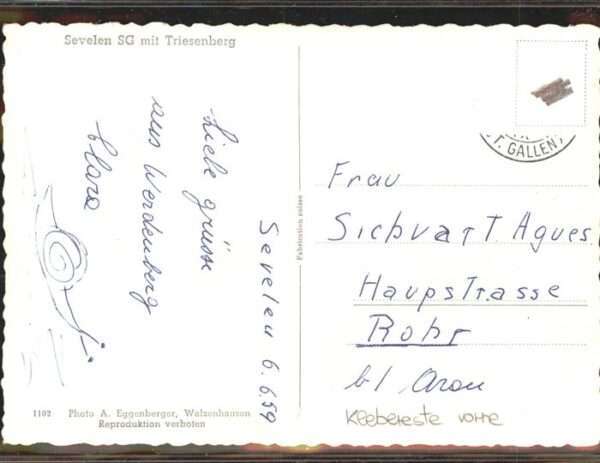 Sevelen SG mit Triesenberg
Sevelen 6.6.59
Liebe grüsse
aus Werdenberg
Clara
1102 Photo A. Eggenberger, Walzenhausen
Reproduktion verboten
Fabrication suisse
T. GALLEN
Frau
Sichvart Agnes
Haupstrasse
Rohr
b/ Arau
Klebereste vorne